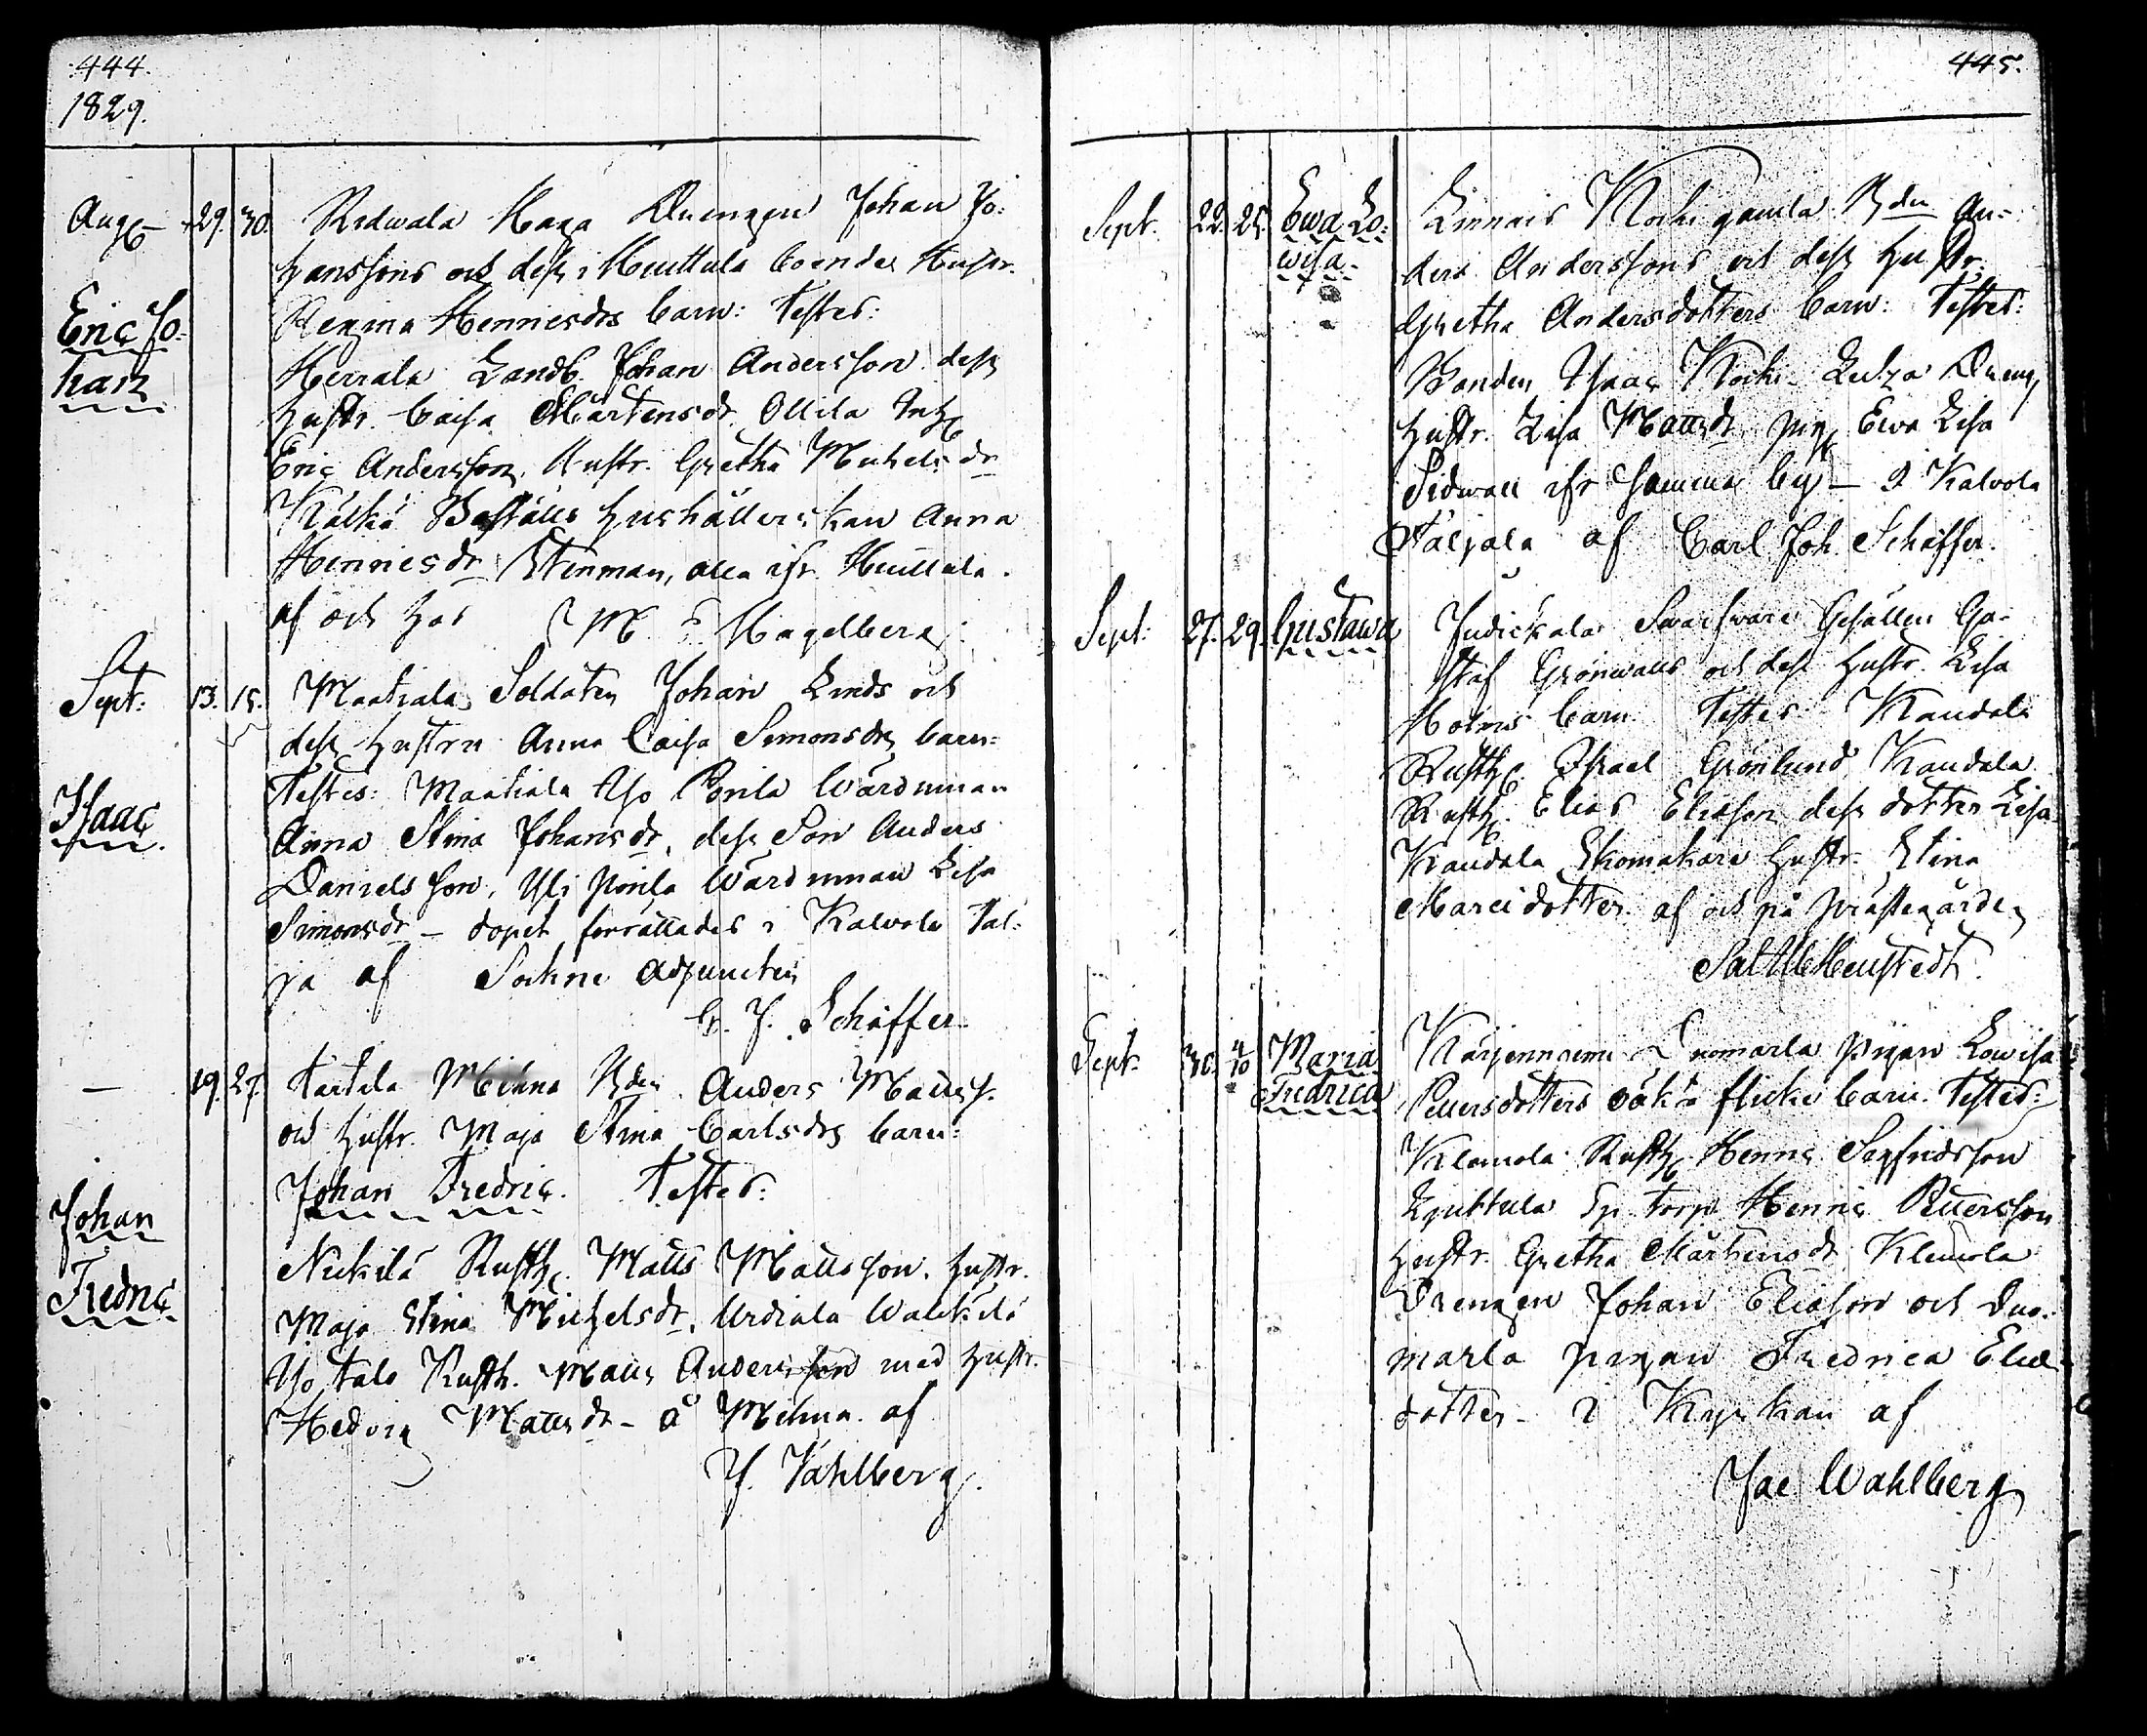 444.
1829.
Aug 29. 30. Ridwala Haga Drengen Johan Jo:
hanssons och dess i Huittula boendes Hustr.
Regina Hennicsdrs barn: Testes:
Eric Jo:
han
Herrala Landb. Johan Andersson dess
hustr. Caisa Mårtensdr. Ollila Inh
Eric Andersson, Hustr. Gretha Michelsdr
Boställs hushållerskan Anna
Hennicsdr Stenman, alla ifr. Huittula.
af och hos M. Hagelberg
Sept: 13. 15. Maatiala Soldaten Johan Linds och
dess hustru Anna Caisa Simonsdrs barn:
Isaac
Testes: Maatiala Yso Pörila Wärdinnan
Anna Stina Johansdr, dess Son Anders
Danielsson, Yli pörila Wärdinnan Lisa
Simonsdr – dopet förrättades i Kalvola Täl:
jä af Sockne Adjuncten
C. J. Schäffer
– 19. 27. Tarttila Bden Anders Matts.
och hustr. Maja Stina Carlsdrs barn:
Johan Fredric. Testes:
Johan
Fredric
Nickilä Rusth. Matts Mattsson, hustr.
Maja Stina Michelsdr, Urdiala
Yso talo Rusth. Matts Andersson med hustr.
Hedvig Mattsdr – å af
J. Wahlberg.
445.
Sept. 22. 25. Ewa Lo:
wisa
gamla Bden An-
ders Anderssons och dess hustr.
Gretha Andersdotters barn: Testes:
Bonden Isaac Dreng
hustr. Lisa Mattsdr, pig Ewa Lisa
Sidwall ifr samma by – I Kalvola
Täljälä af Carl Joh. Schäffer.
Sept: 27. 29. Gustawa
Judickala Swarfware Gesällen Gu-
staf Grönwalls och dess hustr. Lisa
Holms barn Testes: Kaudala
Rusth. Israel Grönlund, Kaudala
Rusth. Elias Eliasson dess dotter Lisa
Kaudala Skomakare hustr. Stina
Marcidotter. af och på prästegården
Sept. 30. 4/10 Maria
Fredrica
Kärjenniemi pigan Lowisa
Pettersdotters oäkta flicke barn. Testes:
Klemola Rusth. Henric Sigfridsson
torp. Henric Pettersson
hustr. Gretha Mårtensdr Klemola
Drengen Johan Eliasson och Duo-
marla pigan Fredrica Elias
dotter – I Kyrkan af
Jac Wahlberg